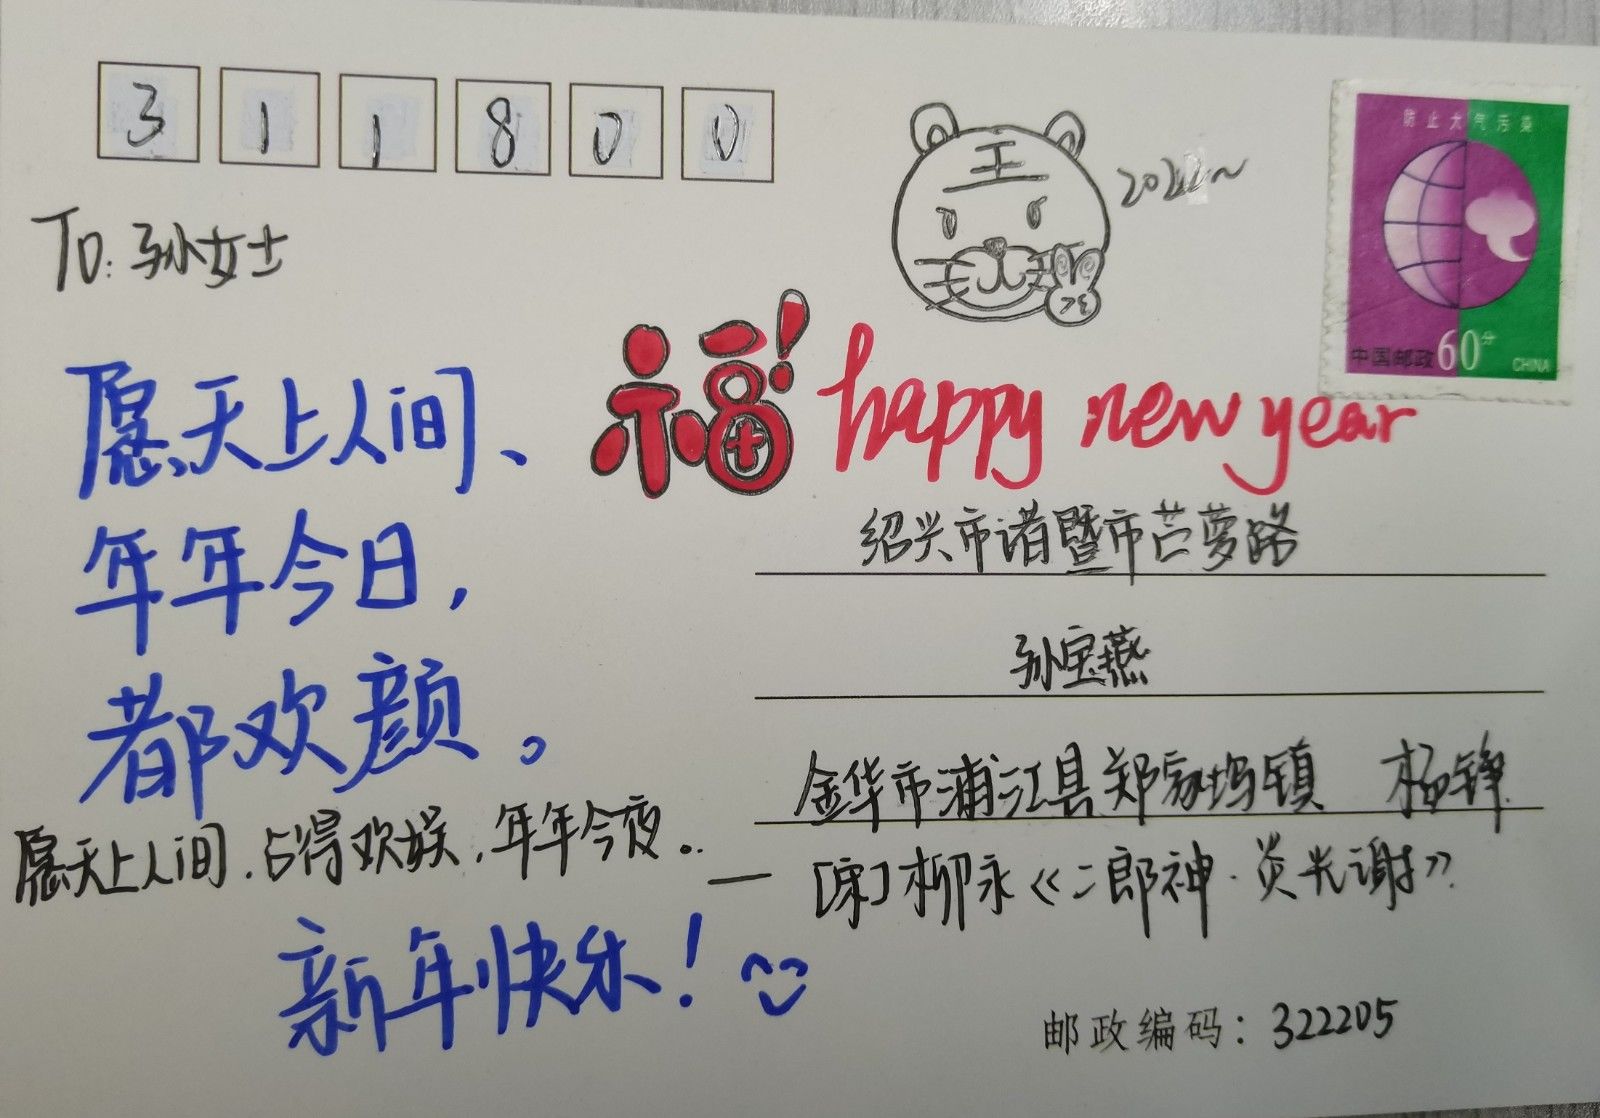 311800
防止大气污染
王
2022~
中国邮政60分 CHINA
To: 孙女士
福!
happy new year
愿天上人间、
年年今日,
都欢颜。
绍兴市诸暨市苎萝路
孙宝燕
金华市浦江县郑家坞镇 杨锋
愿天上人间,占得欢娱,年年今夜。. —
[宋]柳永《二郎神·炎光谢》
新年快乐!
邮政编码:322205